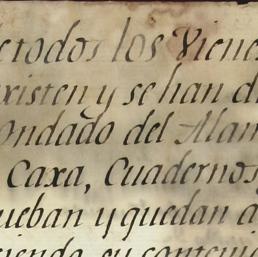 e todos los Viene
xisten y se han d
ondado del Alam
Caxa, Cuadernos
ueban y quedan a
cienda, su conteni